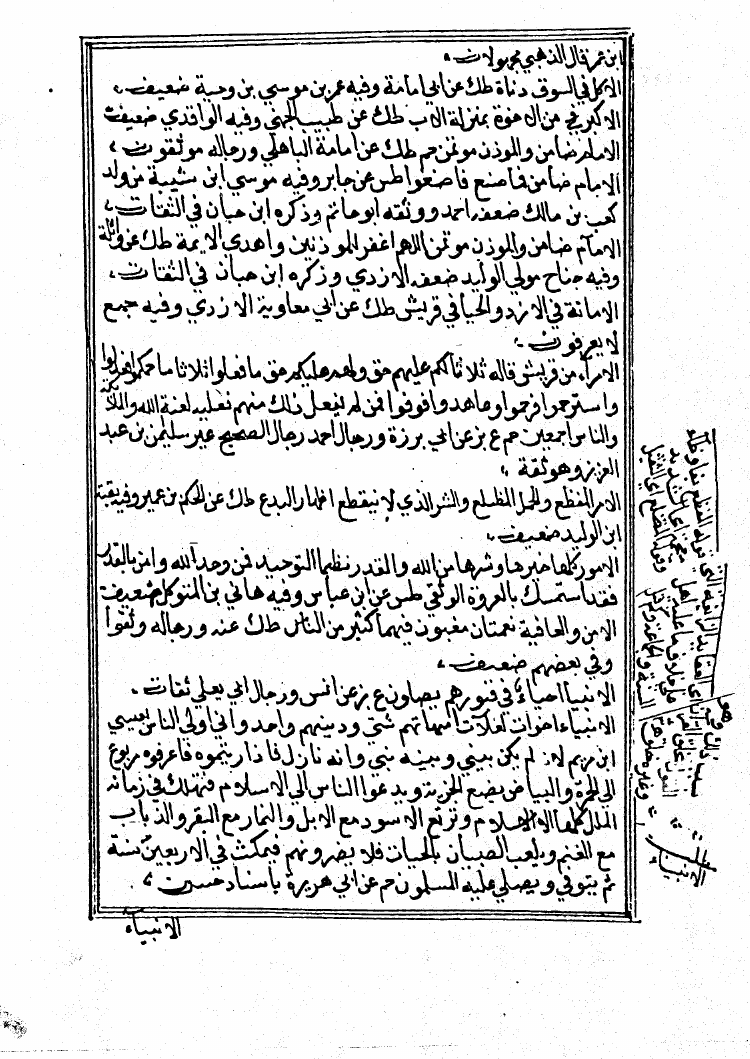 ابن عمر قال الذهبي مجهولات
الاكل في السوق دناة طك عن ابي امامة وفيه عمر بن موسي بن وجية ضعيف
الاكبر في من الاخوة بمنزلة الاب طك عن طبيب الجهني وفيه الواقدي ضعيف
الامام ضامن والموذن موتمن حم طك عن امامة الباهلي ورجاله موثقون
الامام ضامن فما صنع فاصنعوا طس عن جابر وفيه موسي ابن شيبة من ولد
كعب بن مالك ضعفه احمد ووثقه ابو حاتم وذكره ابن حبان في الثقات
الامام ضامن والموذن موتمن اللهم اغفر للموذنين واهدي الايمة طك عن واثلة
وفيه جناح مولي الوليد ضعفه الازدي وذكره ابن حبان في الثقات
الامانة في الازد والحيا في قريش طك عن ابي معاوية الازدي وفيه جمع
لا يعرفون
الامراء من قريش قاله ثلاثا لكم عليهم حق ولهم عليكم حق ما فعلوا ثلاثا ما حكموا فعدلوا
واسترحموا فرحموا وعاهدوا فوفوا فمن لم يفعل ذلك منهم فعليه لعنة الله والملائكة
والناس اجمعين حم ع بز عن ابي برزة ورجال احمد رجال الصحيح غير سليمن بن عبد
العزيز وهو ثقة
الامر المفظع والحمل المظلع والشر الذي لا ينقطع اظهار البدع طك عن الحكم بن عمير وفيه بقية
ابن الوليد ضعيف
الامور كلها خيرها وشرها من الله والقدر نظام التوحيد فمن وحد الله وامن بالقدر
فقد استمسك بالعروة الوثقي طس عن ابن عباس وفيه هاني بن المتوكل ضعيف
الامن والعافية نعمتان مغبون فيهما كثير من الناس طك عنه ورجاله وثقوا
وفي بعضهم ضعيف
الانبيا احياء في قبورهم يصلون ع بز عن انس ورجال ابي يعلي ثقات
الانبياء اخوات لعلات امهاتهم شتي ودينهم واحد واني اولي الناس بعيسي
ابن مريم لانه لم يكن بيني وبينه نبي وانه نازل فاذا رايتموه فاعرفوه مربوع
الي الحمرة والبياض يضع الجزية ويدعوا الناس الي الاسلام فتهلك في زمانه
الملل كلها الا الاسلام وترتع الاسود مع الابل والنمار مع البقر والذياب
مع الغنم ويلعب الصبيان بالحيات فلا يضرونهم فيمكث في الاربعين سنة
ثم يتوفي ويصلي عليه المسلمون حم عن ابي هريرة باسناد حسن
الانبياء